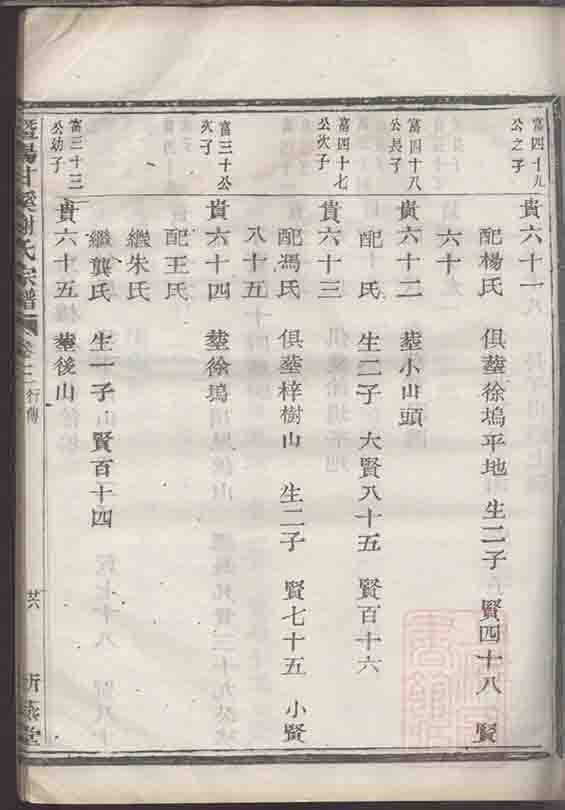 富四十九
公之子
貴六十一
配楊氏 俱塟徐塢平地 生二子 賢四十八 賢
六十
富四十八
公長子
貴六十二 塟小山頭
配 氏 生二子 大賢八十五 賢百十六
富四十七
公次子
貴六十三
配馮氏 俱塟梓樹山 生二子 賢七十五 小賢
八十五
富三十公
次子
貴六十四 塟徐塢
配王氏
繼朱氏
繼龔氏 生一子 賢百十四
富三十三
公幼子
貴六十五 塟後山
暨陽甘溪謝氏宗譜 卷二 行傳 廿六